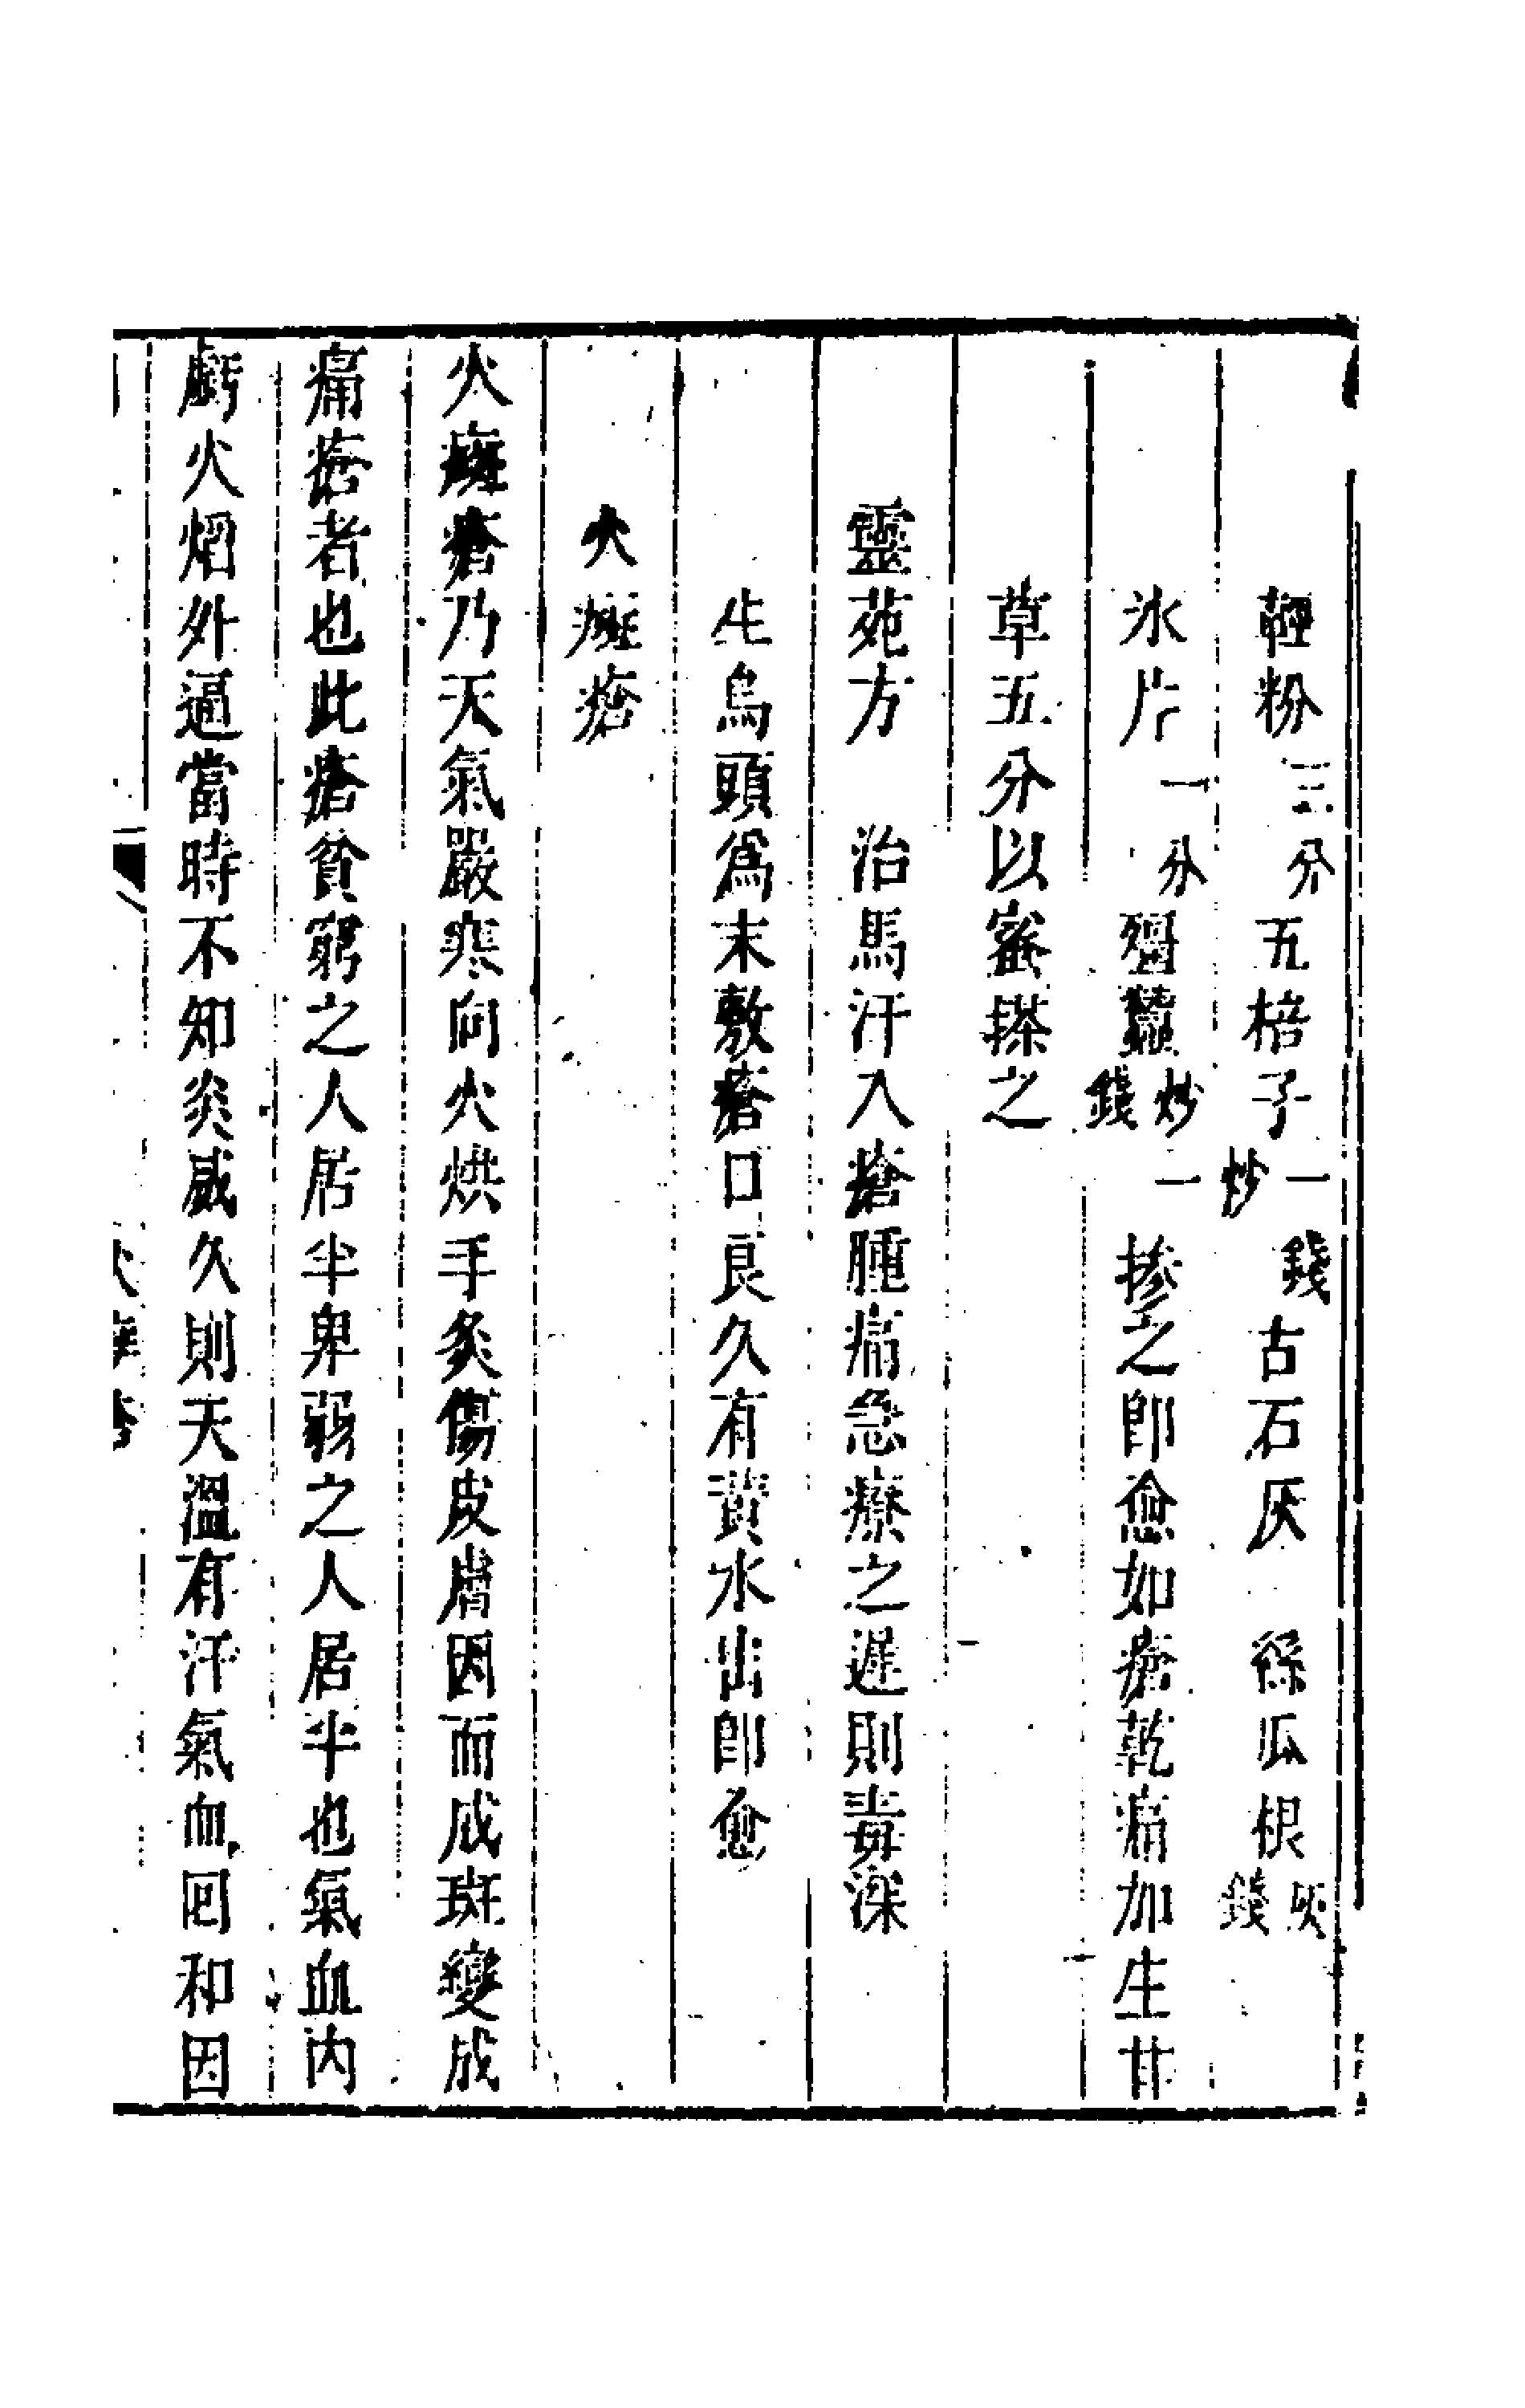 輕粉三分五棓子一錢炒古石灰絲瓜根灰錢
氷片一分殭蠶炒一錢摻之卽愈如瘡乾痛加生甘
草五分以蜜搽之
靈苑方　治馬汗入瘡腫痛急療之遲則毒深
生烏頭為末敷瘡口良久有黃水出卽愈
火癍瘡
火癍瘡乃天氣嚴寒向火烘手炙傷皮膚因而成斑變成
痛瘡者也此瘡貧窮之人居半卑弱之人居半也氣血内
虧火熖外逼當時不知炎威久則天溫有汗氣血囘和因